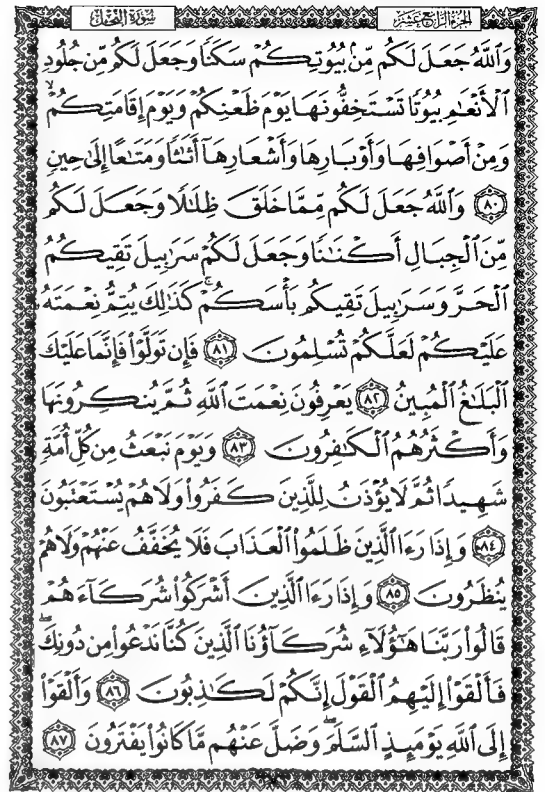 الجزء الرابع عشر
سورة النحل
وَٱللَّهُ جَعَلَ لَكُم مِّنۢ بُيُوتِكُمْ سَكَنًا وَجَعَلَ لَكُم مِّن جُلُودِ
ٱلْأَنْعَٰمِ بُيُوتًا تَسْتَخِفُّونَهَا يَوْمَ ظَعْنِكُمْ وَيَوْمَ إِقَامَتِكُمْ ۙ
وَمِنْ أَصْوَافِهَا وَأَوْبَارِهَا وَأَشْعَارِهَآ أَثَٰثًا وَمَتَٰعًا إِلَىٰ حِينٍ
﴿٨٠﴾ وَٱللَّهُ جَعَلَ لَكُم مِّمَّا خَلَقَ ظِلَٰلًا وَجَعَلَ لَكُم
مِّنَ ٱلْجِبَالِ أَكْنَٰنًا وَجَعَلَ لَكُمْ سَرَٰبِيلَ تَقِيكُمُ
ٱلْحَرَّ وَسَرَٰبِيلَ تَقِيكُم بَأْسَكُمْ ۚ كَذَٰلِكَ يُتِمُّ نِعْمَتَهُۥ
عَلَيْكُمْ لَعَلَّكُمْ تُسْلِمُونَ ﴿٨١﴾ فَإِن تَوَلَّوْا۟ فَإِنَّمَا عَلَيْكَ
ٱلْبَلَٰغُ ٱلْمُبِينُ ﴿٨٢﴾ يَعْرِفُونَ نِعْمَتَ ٱللَّهِ ثُمَّ يُنكِرُونَهَا
وَأَكْثَرُهُمُ ٱلْكَٰفِرُونَ ﴿٨٣﴾ وَيَوْمَ نَبْعَثُ مِن كُلِّ أُمَّةٍ
شَهِيدًا ثُمَّ لَا يُؤْذَنُ لِلَّذِينَ كَفَرُوا۟ وَلَا هُمْ يُسْتَعْتَبُونَ
﴿٨٤﴾ وَإِذَا رَءَا ٱلَّذِينَ ظَلَمُوا۟ ٱلْعَذَابَ فَلَا يُخَفَّفُ عَنْهُمْ وَلَا هُمْ
يُنظَرُونَ ﴿٨٥﴾ وَإِذَا رَءَا ٱلَّذِينَ أَشْرَكُوا۟ شُرَكَآءَهُمْ
قَالُوا۟ رَبَّنَا هَٰٓؤُلَآءِ شُرَكَآؤُنَا ٱلَّذِينَ كُنَّا نَدْعُوا۟ مِن دُونِكَ ۖ
فَأَلْقَوْا۟ إِلَيْهِمُ ٱلْقَوْلَ إِنَّكُمْ لَكَٰذِبُونَ ﴿٨٦﴾ وَأَلْقَوْا۟
إِلَى ٱللَّهِ يَوْمَئِذٍ ٱلسَّلَمَ ۖ وَضَلَّ عَنْهُم مَّا كَانُوا۟ يَفْتَرُونَ ﴿٨٧﴾